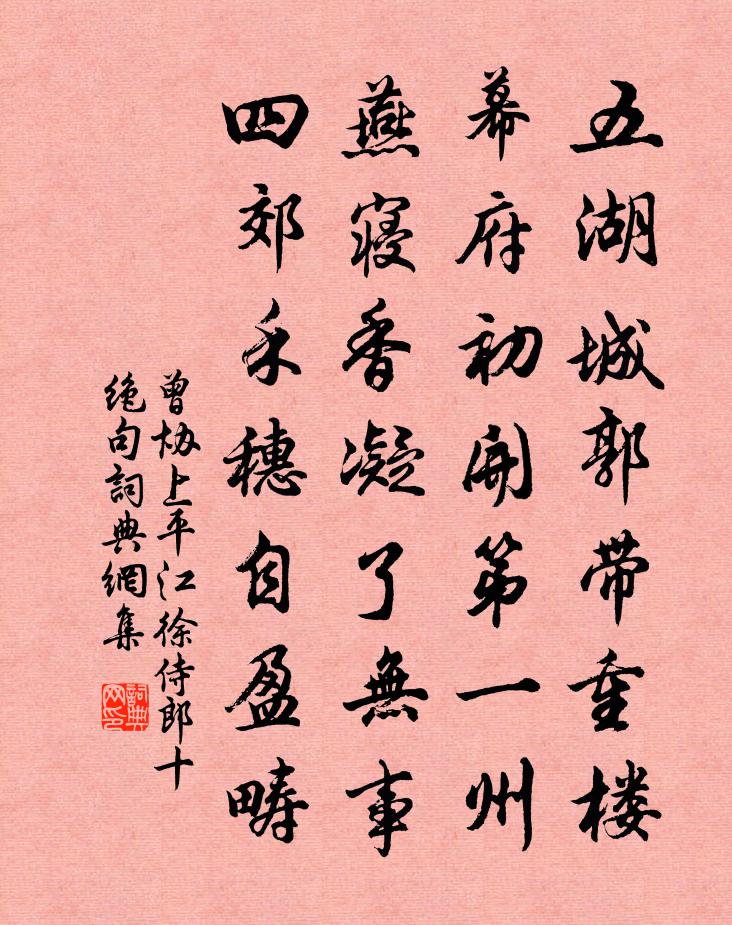 五湖城郭带重楼
幕府初開第一州
燕寝香凝了無事
四郊禾穗自盈畴
曾协上平江徐侍郎十
绝句詞典網集
詞典网印